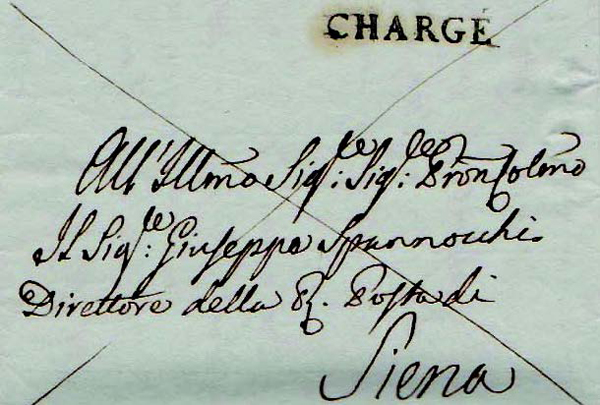 CHARGÉ
All'Illmo Sigre: Sigre: Pron Colmo
Il Sigre: Giuseppe Spannocchi
Direttore della R. Posta di
Siena